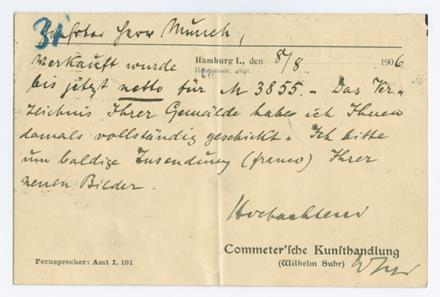 31
Geehrter Herr Munch,
Hamburg I., den 8/8 1906
Hermannstr.
verkauft wurde
bis jetzt netto für M 3855.- Das Ver-
zeichnis Ihrer Gemälde habe ich Ihnen
damals vollständig geschickt. Ich bitte
um baldige Zusendung (franco) Ihrer
neuen Bilder.
Hochachtend
Commeter'sche Kunsthandlung
(Wilhelm Suhr)
Fernsprecher: Amt I, 191